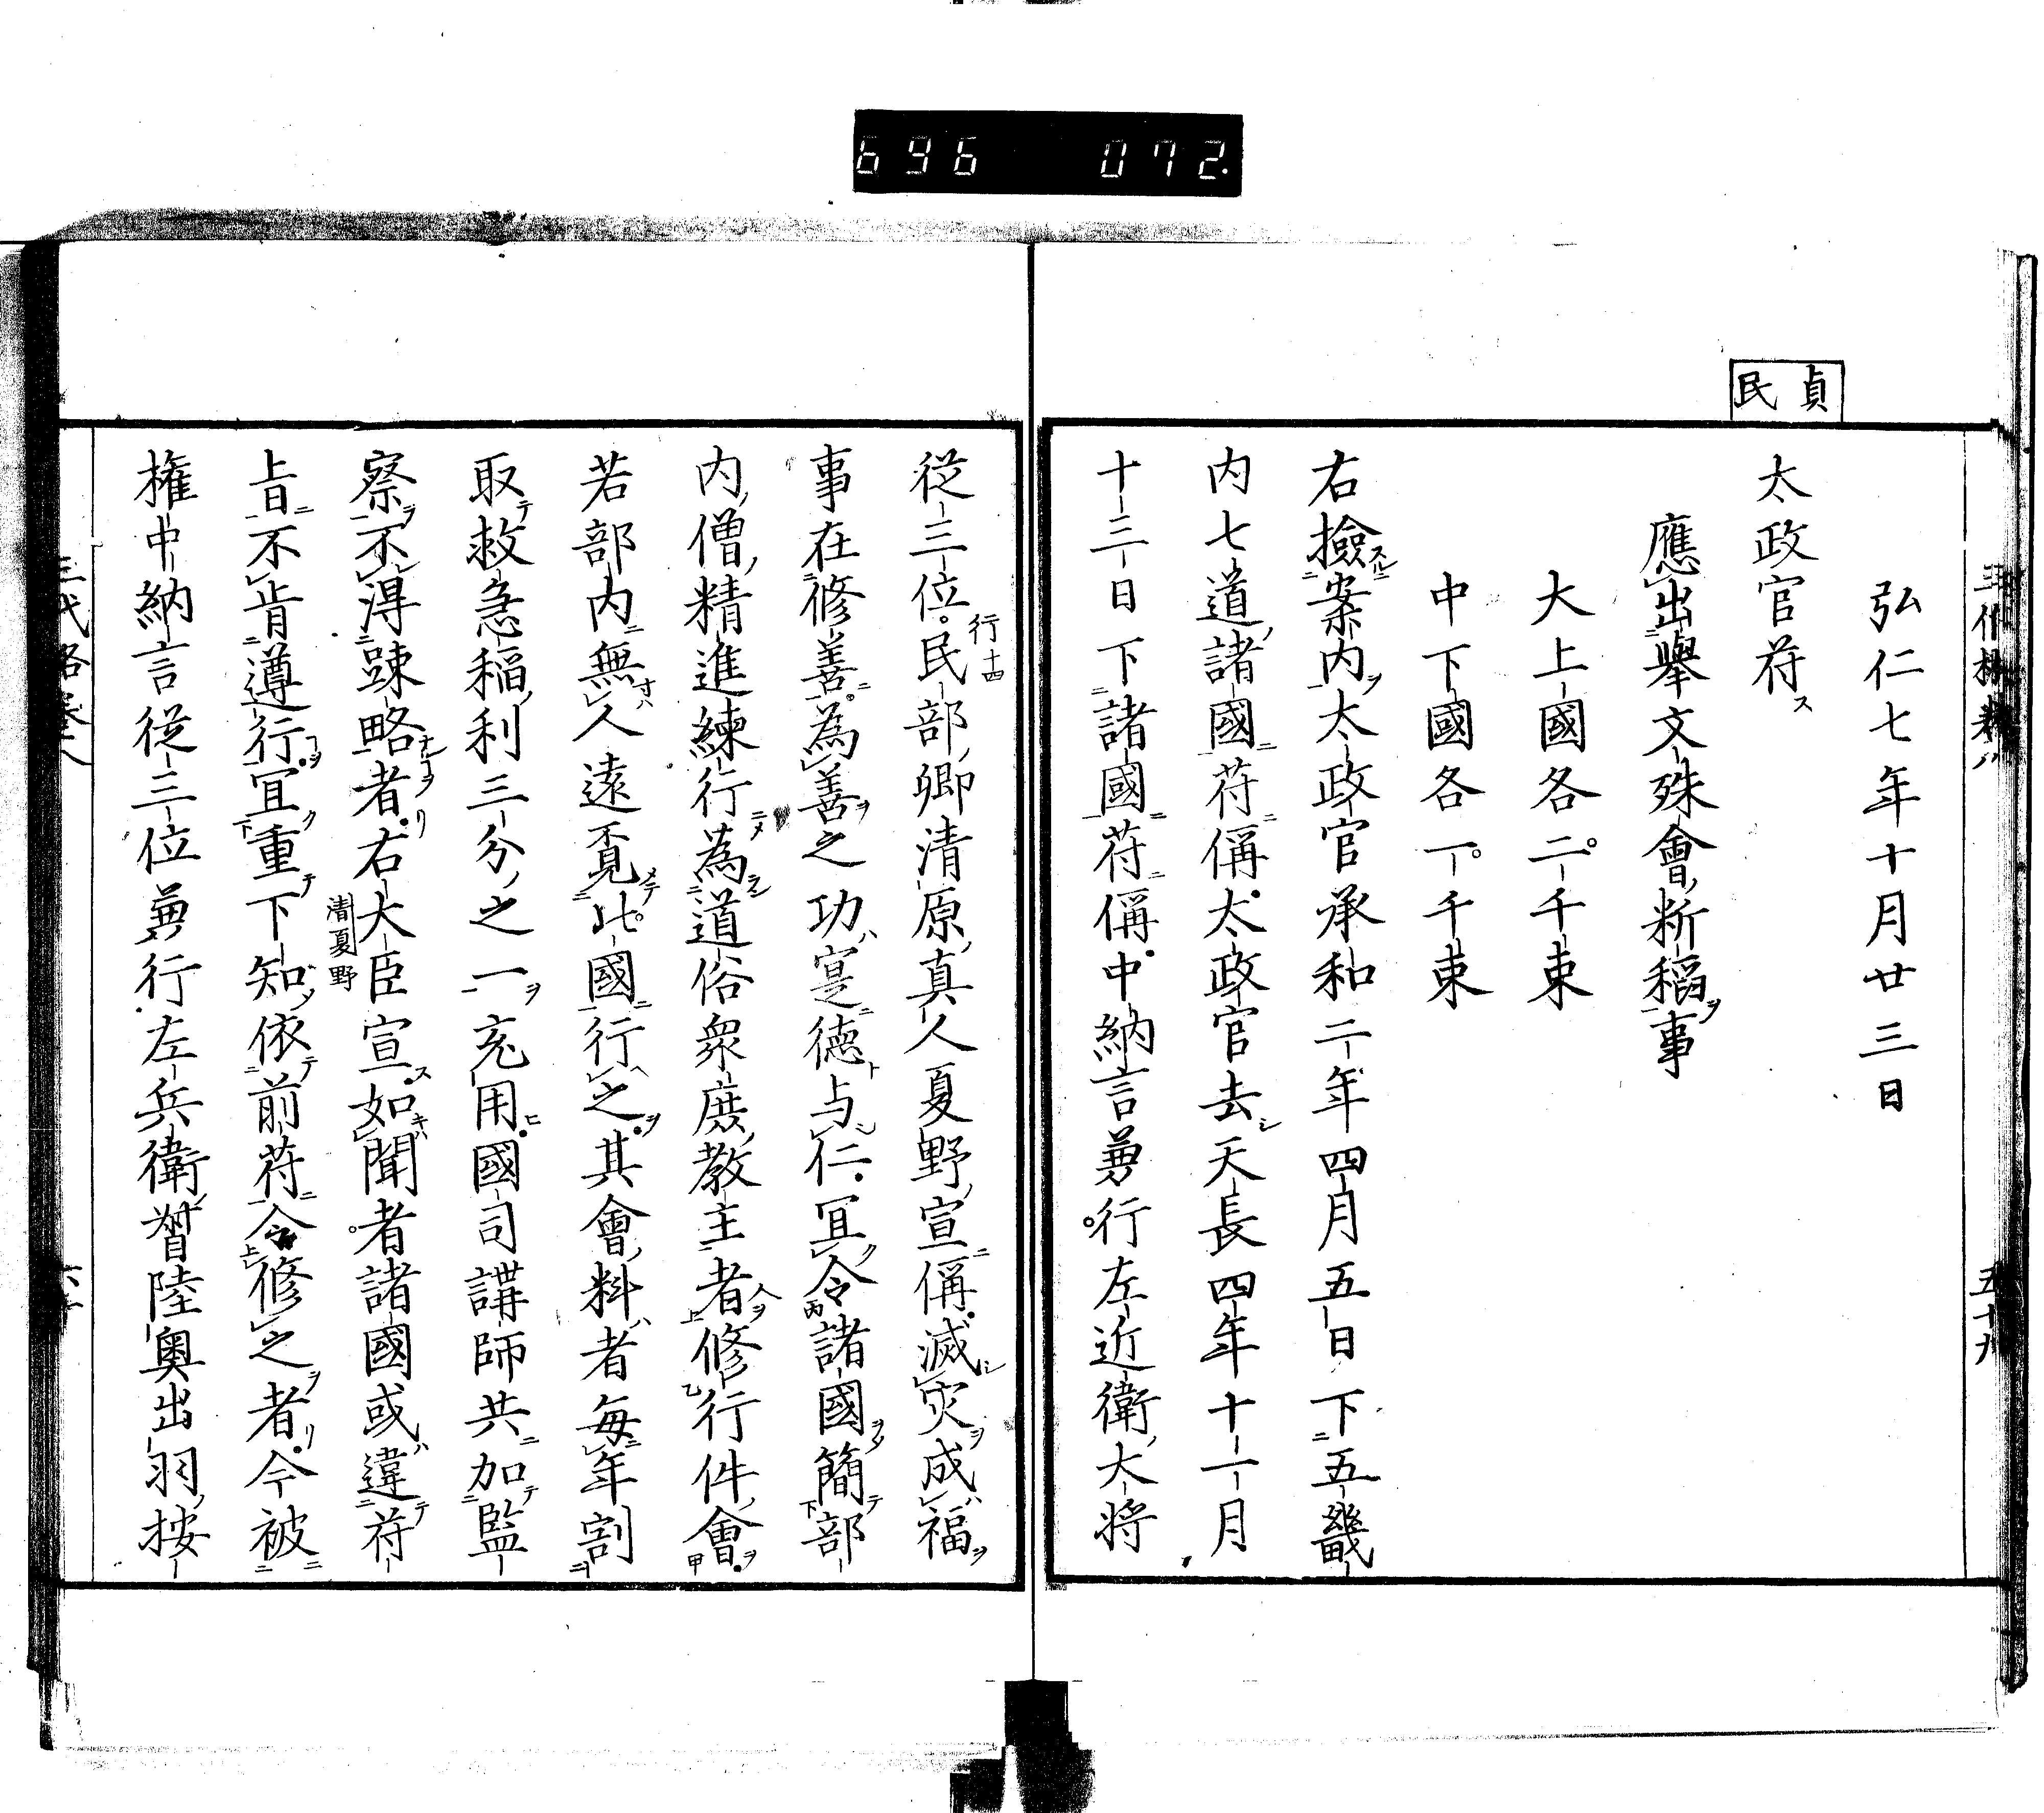 696 072.
貞民
弘仁七年十月廿三日
太政官苻ス
應出擧文殊會䉼稻ヲ事
大上國各二千束
中下國各一千束
右撿案内太政官承和二年四月五日下五畿
内七道諸國苻偁太政官去天長四年十一月
十三日下諸國苻偁中納言兼行左近衛大将
從三位行十四民部卿清原真人夏野宣偁滅灾成福
事在修善為善之功寔德与仁冝令諸國簡部
内僧精進練行為道俗衆庶教主者修行件會
若部内無人遠覔比國行之其會料者毎年割
取救急稲利三分之一充用國司講師共加監
察不得踈略者右大臣清夏野宣如聞者諸國或違苻
旨不肯遵行冝重下知依前苻令修之者今被
權中納言從三位兼行左兵衛督陸奥出羽按
五十九